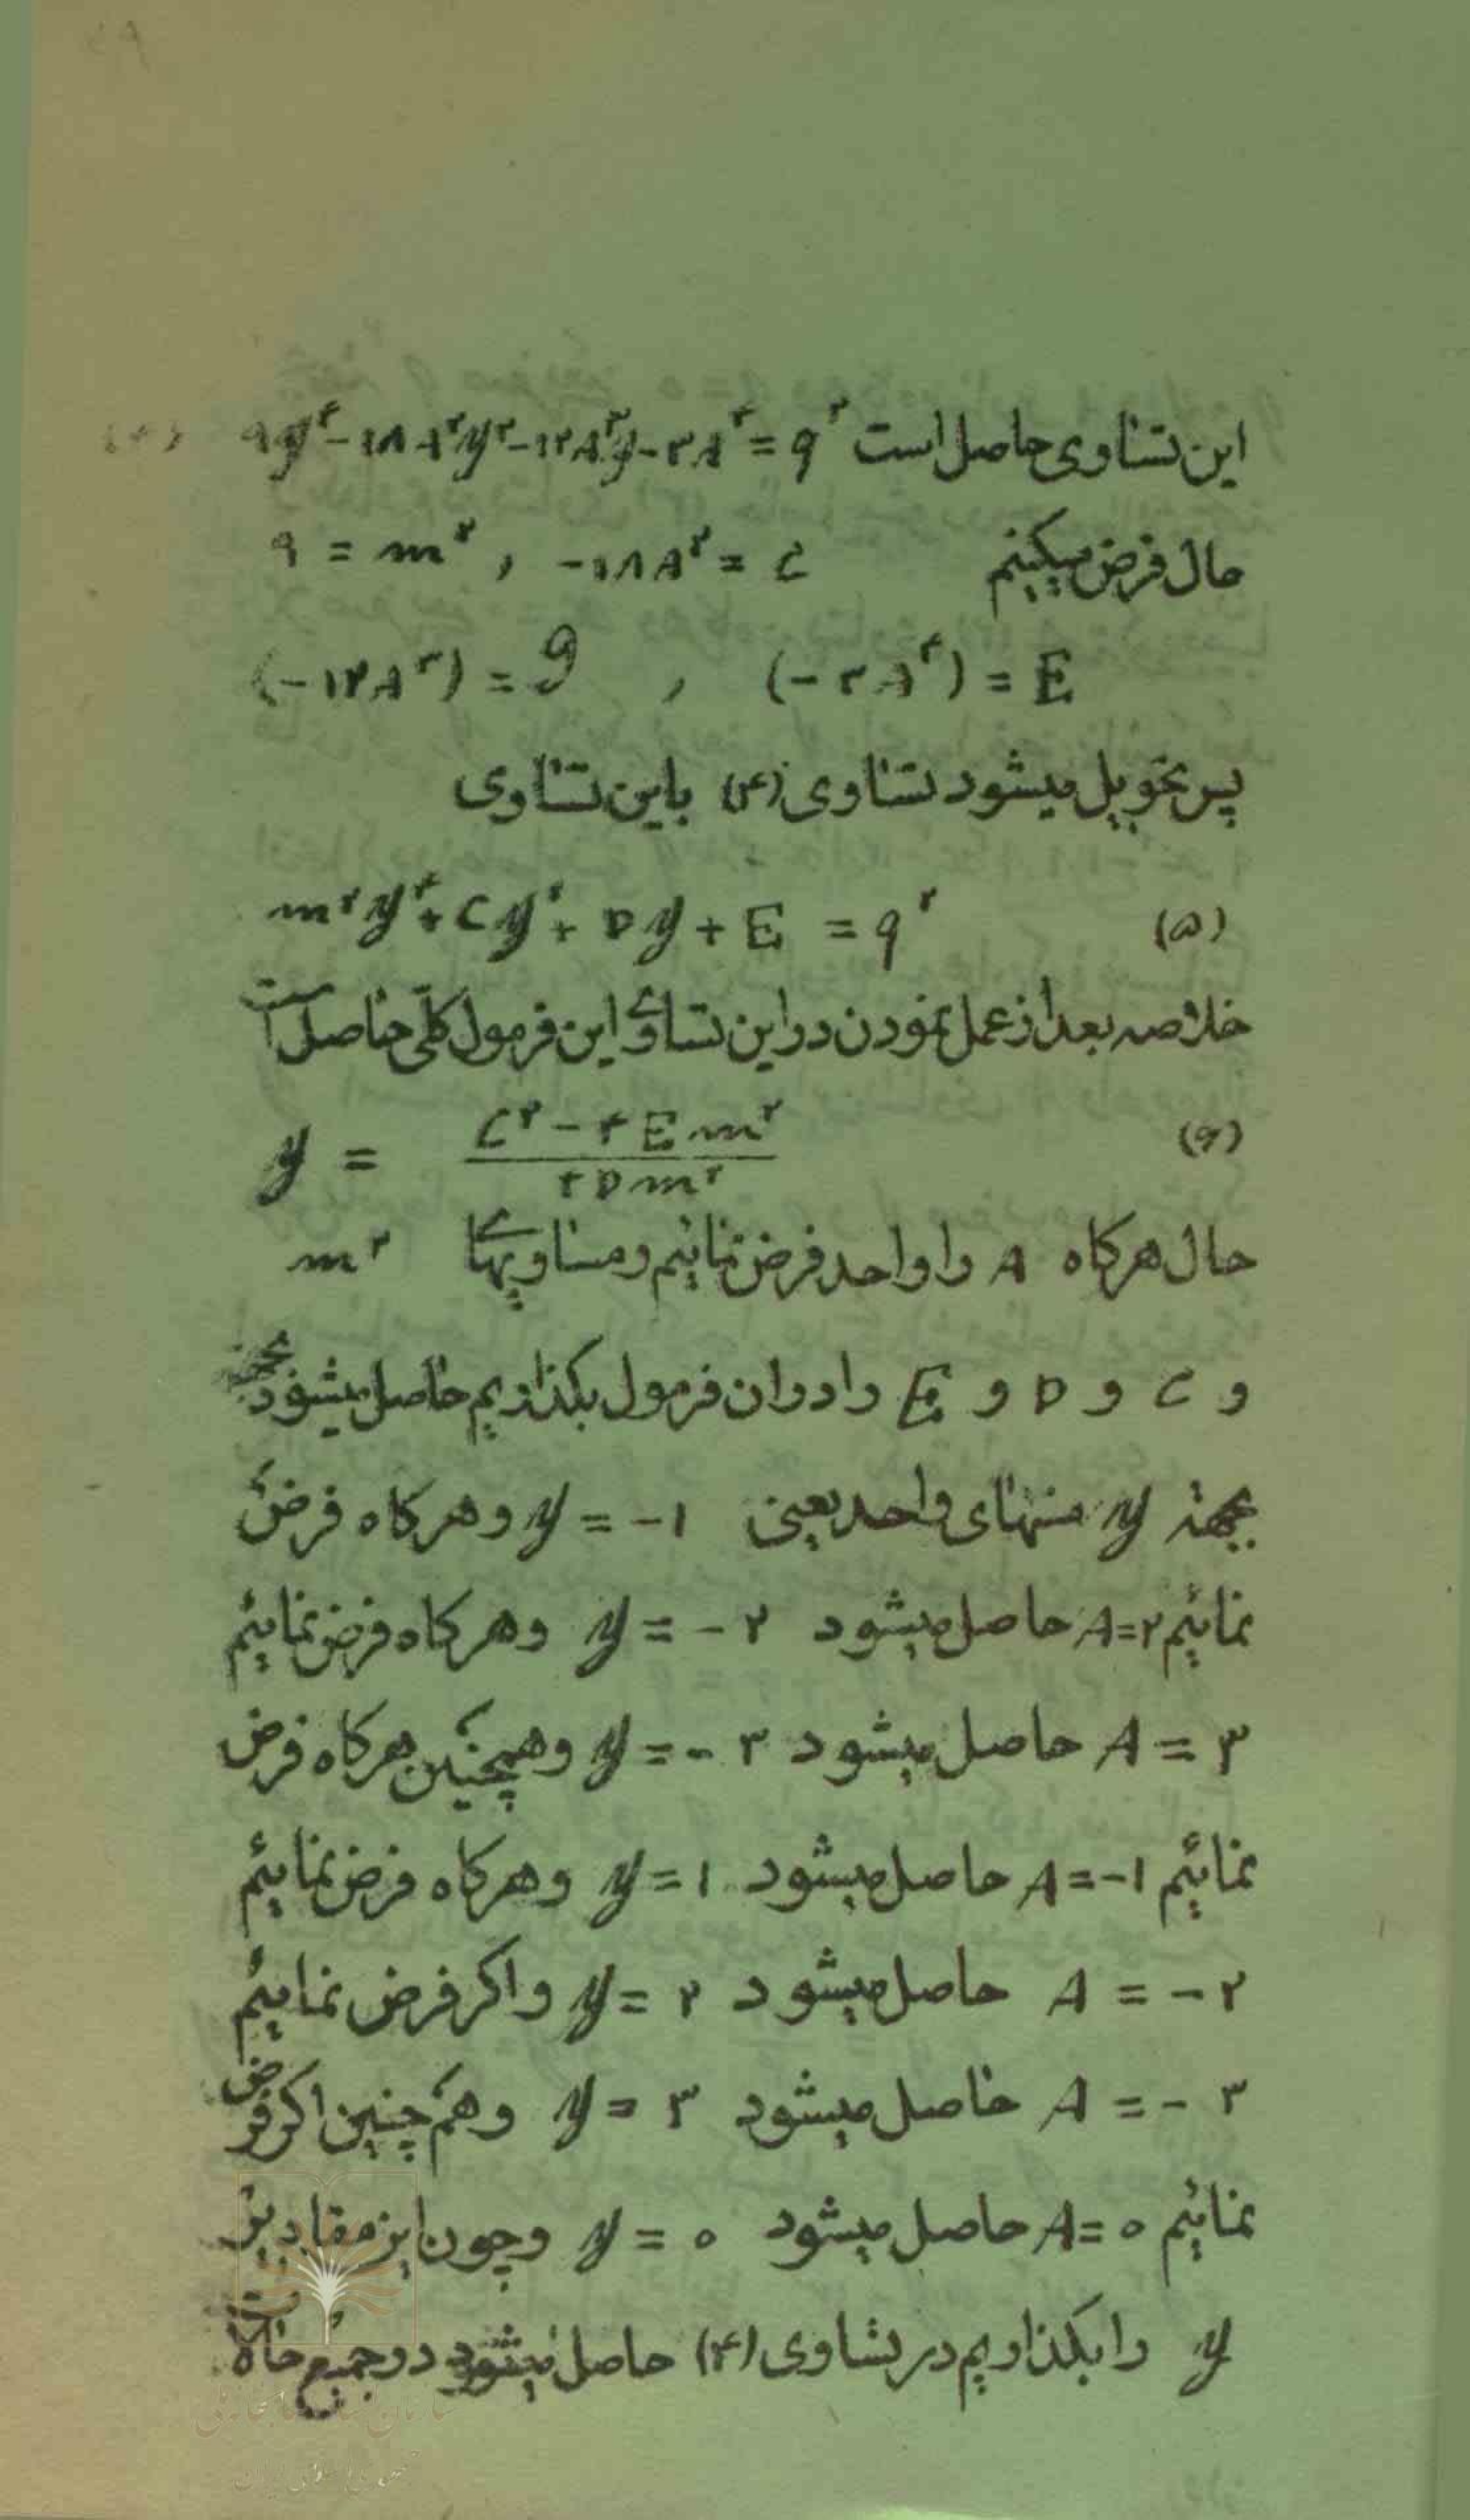 این تساوی حاصل است ۹y⁴-۱۸A²y²-۱۲A³y-۳A⁴=q² (۴)
حال فرض میکنیم ۹ = m² , -۱۸A² = C
(-۱۲A³) = D , (-۳A⁴) = E
پس تحویل میشود تساوی (۴) باین تساوی
m²y⁴+Cy²+Dy+E = q² (۵)
خلاصه بعد از عمل نمودن در این تساوی این فرمول کلّی حاصل است
y = (C²-۴Em²)/(۴Dm²) (۶)
حال هرکاه A را واحد فرض نمائیم و مساویهای m²
و C و D و E را در ان فرمول بکذاریم حاصل میشود
بجهة y منهای واحد یعنی y = -۱ و هرکاه فرض
نمائیم A=۲ حاصل میشود y = -۲ و هرکاه فرض نمائیم
A = ۳ حاصل میشود y = -۳ و همچنین هرکاه فرض
نمائیم A=-۱ حاصل میشود y=۱ و هرکاه فرض نمائیم
A = -۲ حاصل میشود y = ۲ و اکر فرض نمائیم
A = -۳ حاصل میشود y = ۳ و هم چنین اکر فرض
نمائیم A=۰ حاصل میشود y = ۰ و چون این مقادیر
y را بکذاریم در تساوی (۴) حاصل میشود در جمیع حالات